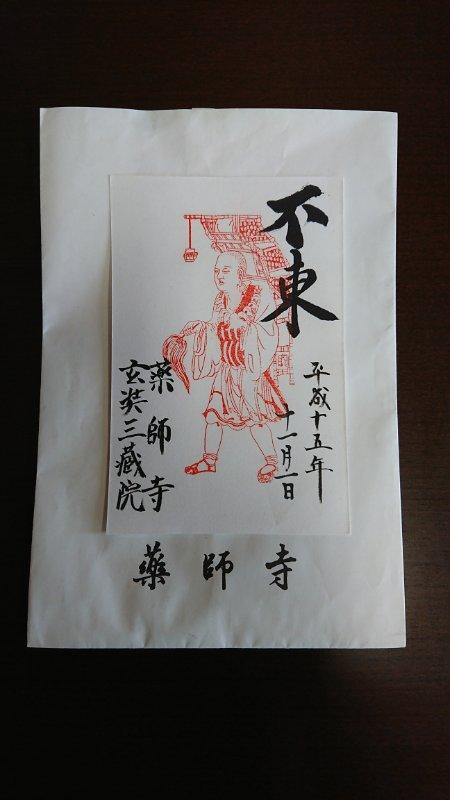 不東
平成十五年
十一月一日
薬師寺
玄奘三藏院
藥師寺